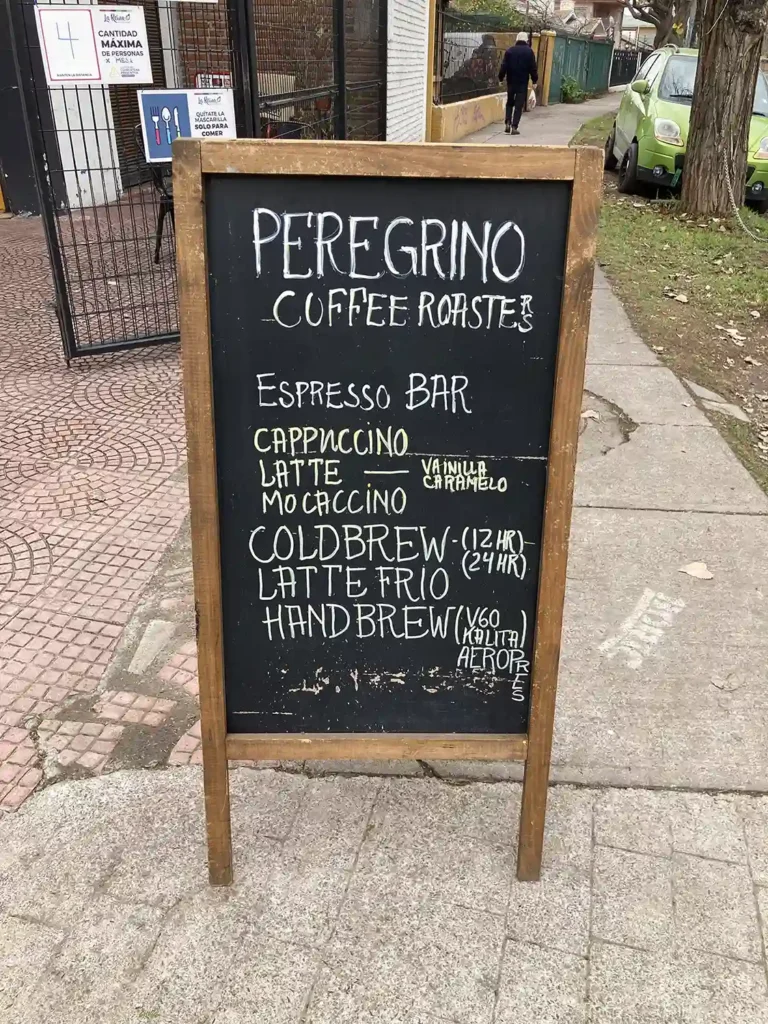 La Reina
4
CANTIDAD
MÁXIMA
DE PERSONAS
X MESA
La Reina
QUÍTATE LA
MASCARILLA
SOLO PARA
COMER
PEREGRINO
COFFEE ROASTERS
ESPRESSO BAR
CAPPUCCINO
LATTE — VAINILLA
CARAMELO
MOCACCINO
COLDBREW - (12 HR)
(24 HR)
LATTE FRIO
HANDBREW (V60
KALITA)
AEROPRES